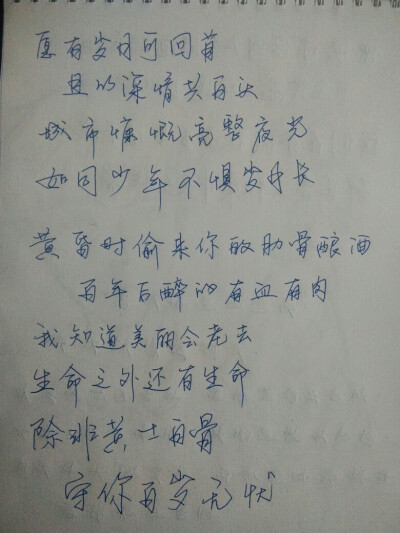 愿有岁月可回首
且以深情共百头
城市慷慨亮整夜光
如同少年不惧岁月长
黄昏时偷来你的肋骨酿酒
百年后醉的有血有肉
我知道美丽会老去
生命之外还有生命
除非黄土白骨
守你百岁无忧